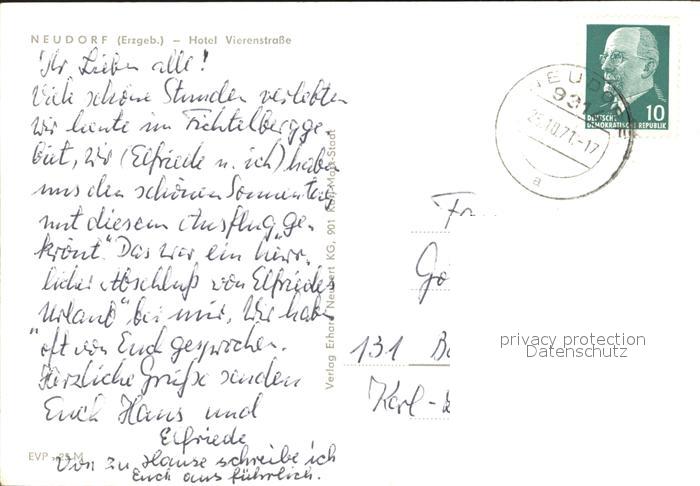 NEUDORF (Erzgeb.) – Hotel Vierenstraße
Ihr Lieben alle!
Viele schöne Stunden verlebten
wir heute im Fichtelbergge-
biet, wir (Elfriede u. ich) haben
uns den schönen Sonnentag
mit diesem Ausflug "ge-
krönt". Das war ein herr-
licher Abschluß von Elfriedes
"Urlaub" bei mir. Wir haben
oft von Euch gesprochen.
Herzliche Grüße senden
Euch Hans und
Elfriede
Von zu Hause schreibe ich
Euch ausführlich.
EVP -,25 M
Verlag Erhard Neubert KG, 901 Karl-Marx-Stadt
NEUDORF
931
25.10.71.-17
a
10
DEUTSCHE
DEMOKRATISCHE REPUBLIK
131
Karl-
privacy protection
Datenschutz